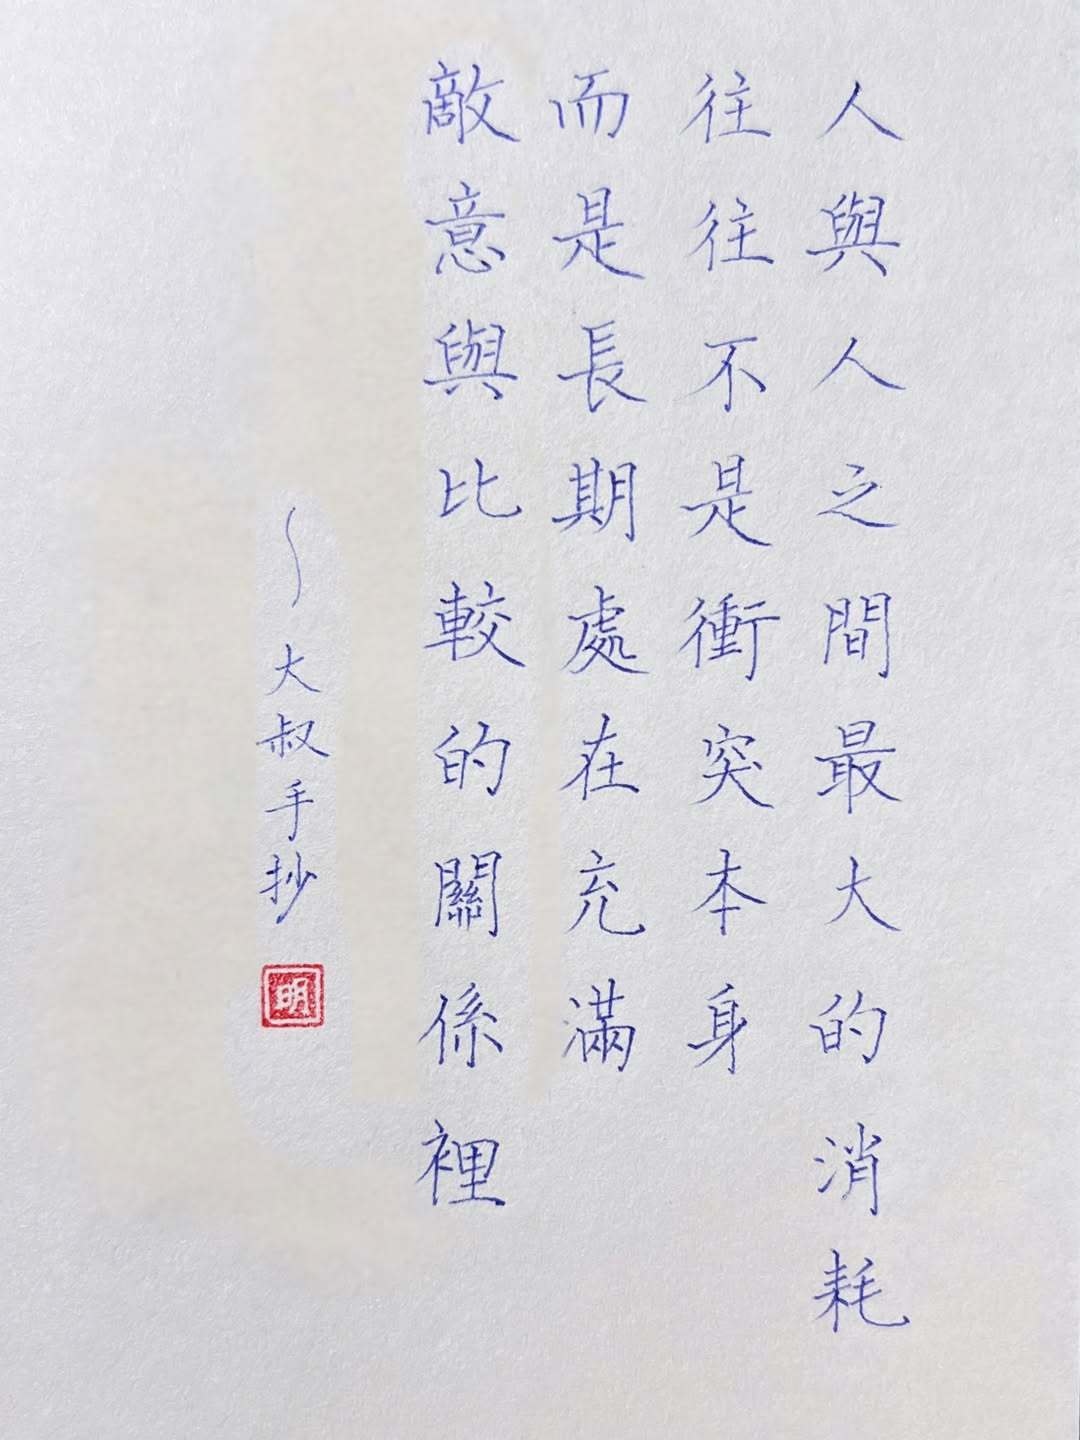 人與人之間最大的消耗
往往不是衝突本身
而是長期處在充滿
敵意與比較的關係裡
~大叔手抄
明